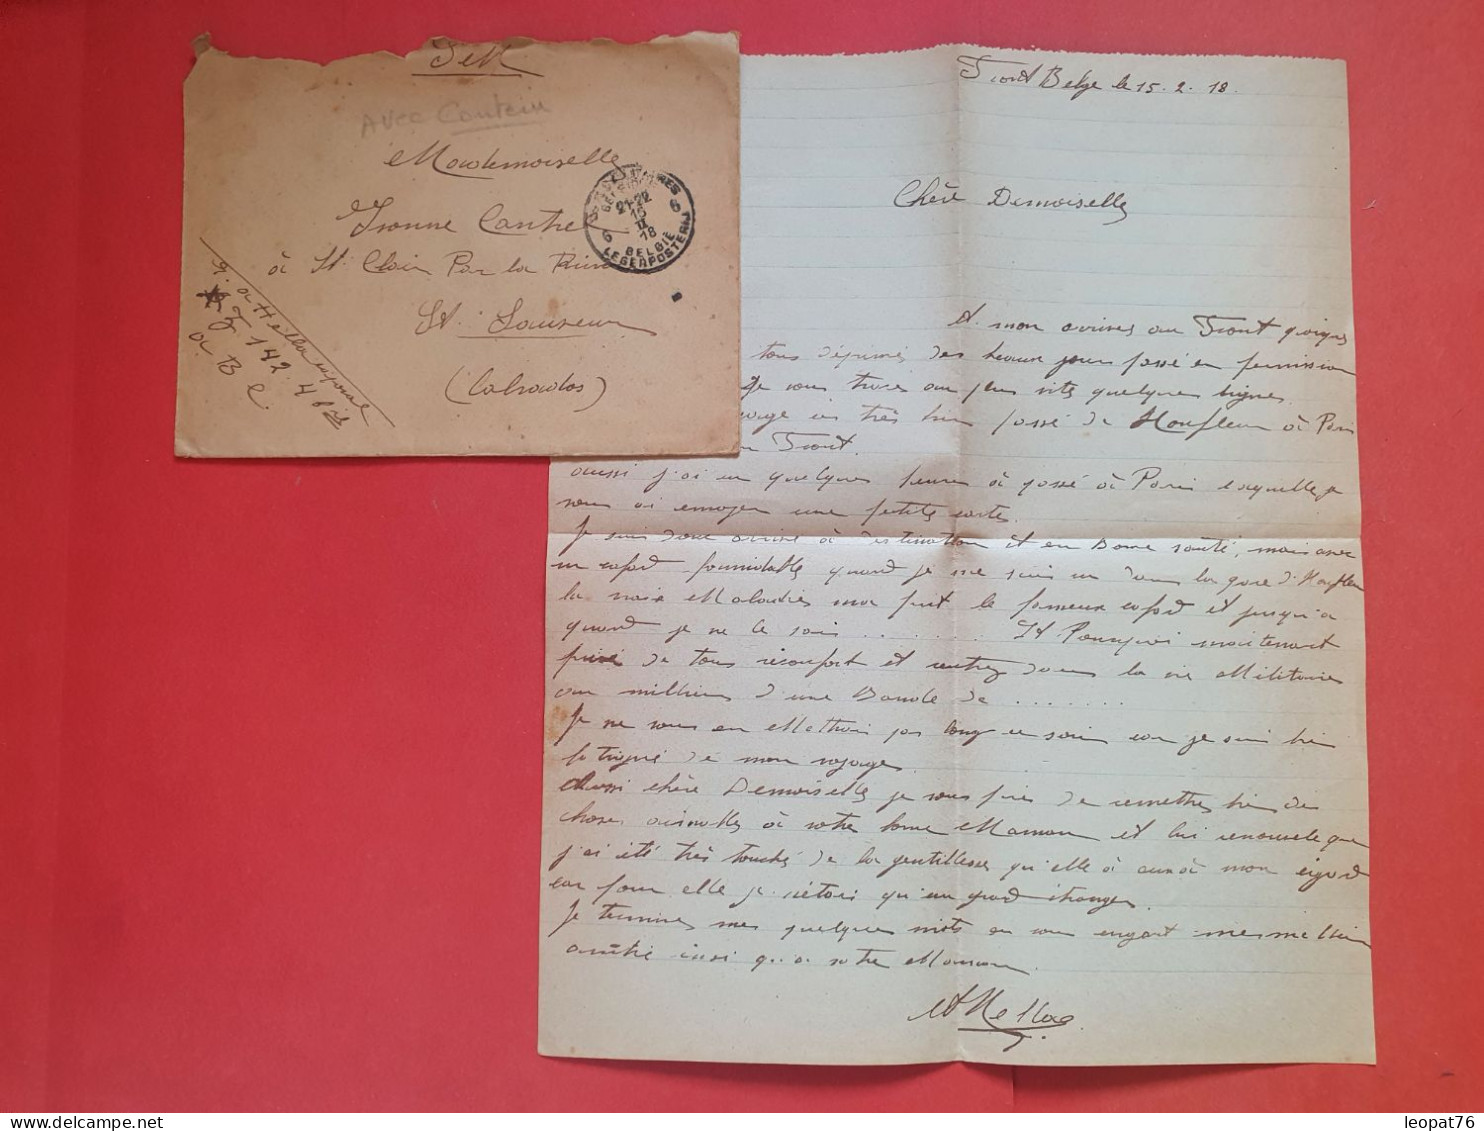 S M
Avec Contenu
Mademoiselle
Yvonne Cantrel
à St Clair Par la Rivi
St. Sauveur
(Calvados)
Z 142 4
BELGIË
LEGERPOSTERIJ
21-22
15
II
18
6 6
Front Belge le 15. 2. 18.
Chère Demoiselle
A mon arrivée au Front quoique
tous déprimé des beaux jours passé en permission
Je vous trace au plus vite quelques lignes.
très bien passé de Honfleur à Paris
Front.
aussi j'ai eu quelques heures à passé à Paris laquelle je
vous ai envoyer une petite carte.
Je suis donc arrivé à destination et en Bonne santé, mais avec
un cafard formidable quand je me suis vu dans la gare d'Honfleur
la noire Maladie ma prit le fameux cafard et jusqu'a
quand je ne le sais ........ Et Pourquoi maintenant
privé de tous réconfort et rentrez dans la vie Militaire
au millieu d'une Bande de .......
Je ne vous en Mettrai pas long ce soir car je suis bien
fatigué de mon voyage.
Aussi chère Demoiselle je vous pries de remettre bien des
choses aimables à votre bonne Maman et lui renouvele que
j'ai été très touché de la gentillesse qu'elle à eu à mon égard
car pour elle je n'étais qu'un grand étranger.
Je termine mes quelques mots en vous envoyant mes meilleurs
amitié ainsi qu'a votre Maman.
leopat76